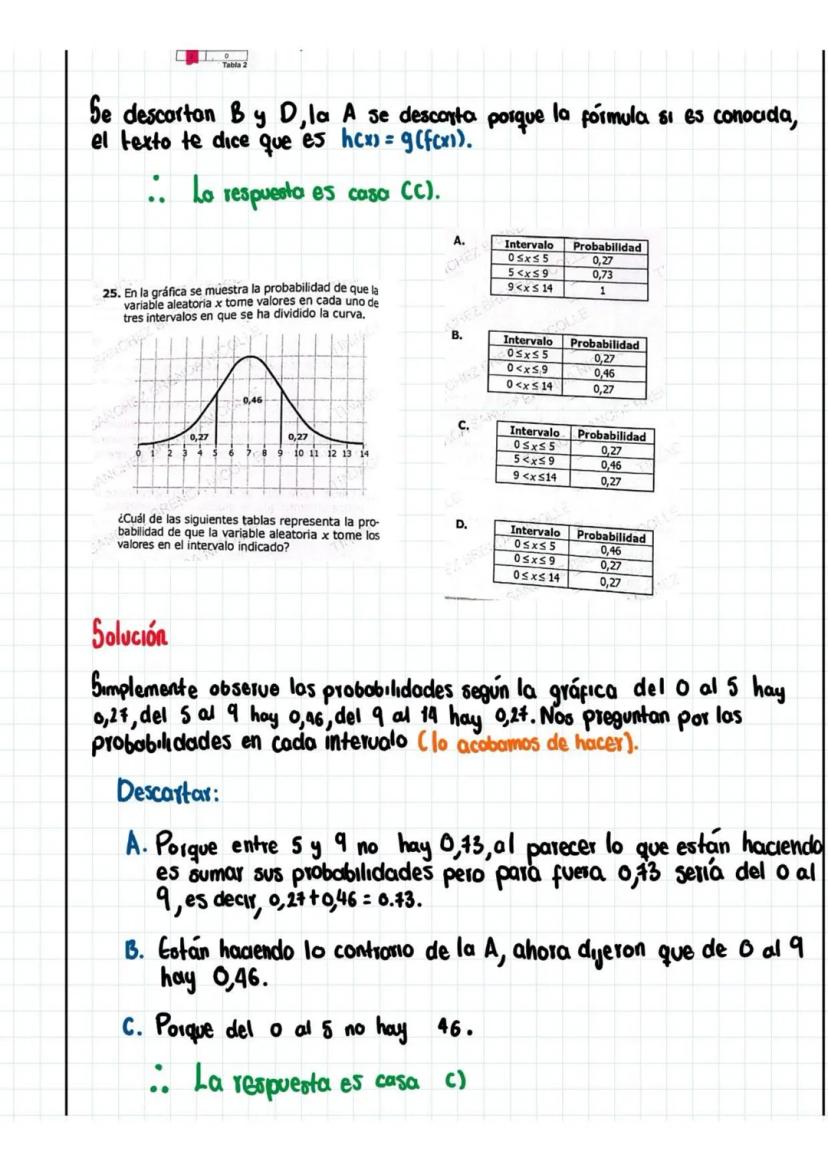 0
Tabla 2
Se descartan B y D, la A se descarta porque la fórmula si es conocida,
el texto te dice que es h(x) = g(f(x)).
∴ La respuesta es casa (C).
25. En la gráfica se muestra la probabilidad de que la
variable aleatoria x tome valores en cada uno de
tres intervalos en que se ha dividido la curva.
0,46
0,27 0,27
0 1 2 3 4 5 6 7 8 9 10 11 12 13 14
¿Cuál de las siguientes tablas representa la pro-
babilidad de que la variable aleatoria x tome los
valores en el intervalo indicado?
A.
Intervalo Probabilidad
0 ≤ x ≤ 5 0,27
5 < x ≤ 9 0,73
9 < x ≤ 14 1
B.
Intervalo Probabilidad
0 ≤ x ≤ 5 0,27
0 < x ≤ 9 0,46
0 < x ≤ 14 0,27
C.
Intervalo Probabilidad
0 ≤ x ≤ 5 0,27
5 < x ≤ 9 0,46
9 < x ≤ 14 0,27
D.
Intervalo Probabilidad
0 ≤ x ≤ 5 0,46
0 ≤ x ≤ 9 0,27
0 ≤ x ≤ 14 0,27
Solución
Simplemente observe las probabilidades según la gráfica del 0 al 5 hay
0,27, del 5 al 9 hay 0,46, del 9 al 14 hay 0,27. Nos preguntan por las
probabilidades en cada intervalo (lo acabamos de hacer).
Descartar:
A. Porque entre 5 y 9 no hay 0,73, al parecer lo que están haciendo
es sumar sus probabilidades pero para fuera 0,73 sería del 0 al
9, es decir, 0,27 + 0,46 = 0.73.
B. Están haciendo lo contrario de la A, ahora dijeron que de 0 al 9
hay 0,46.
C. Porque del 0 al 5 no hay 46.
∴ La respuesta es casa C)